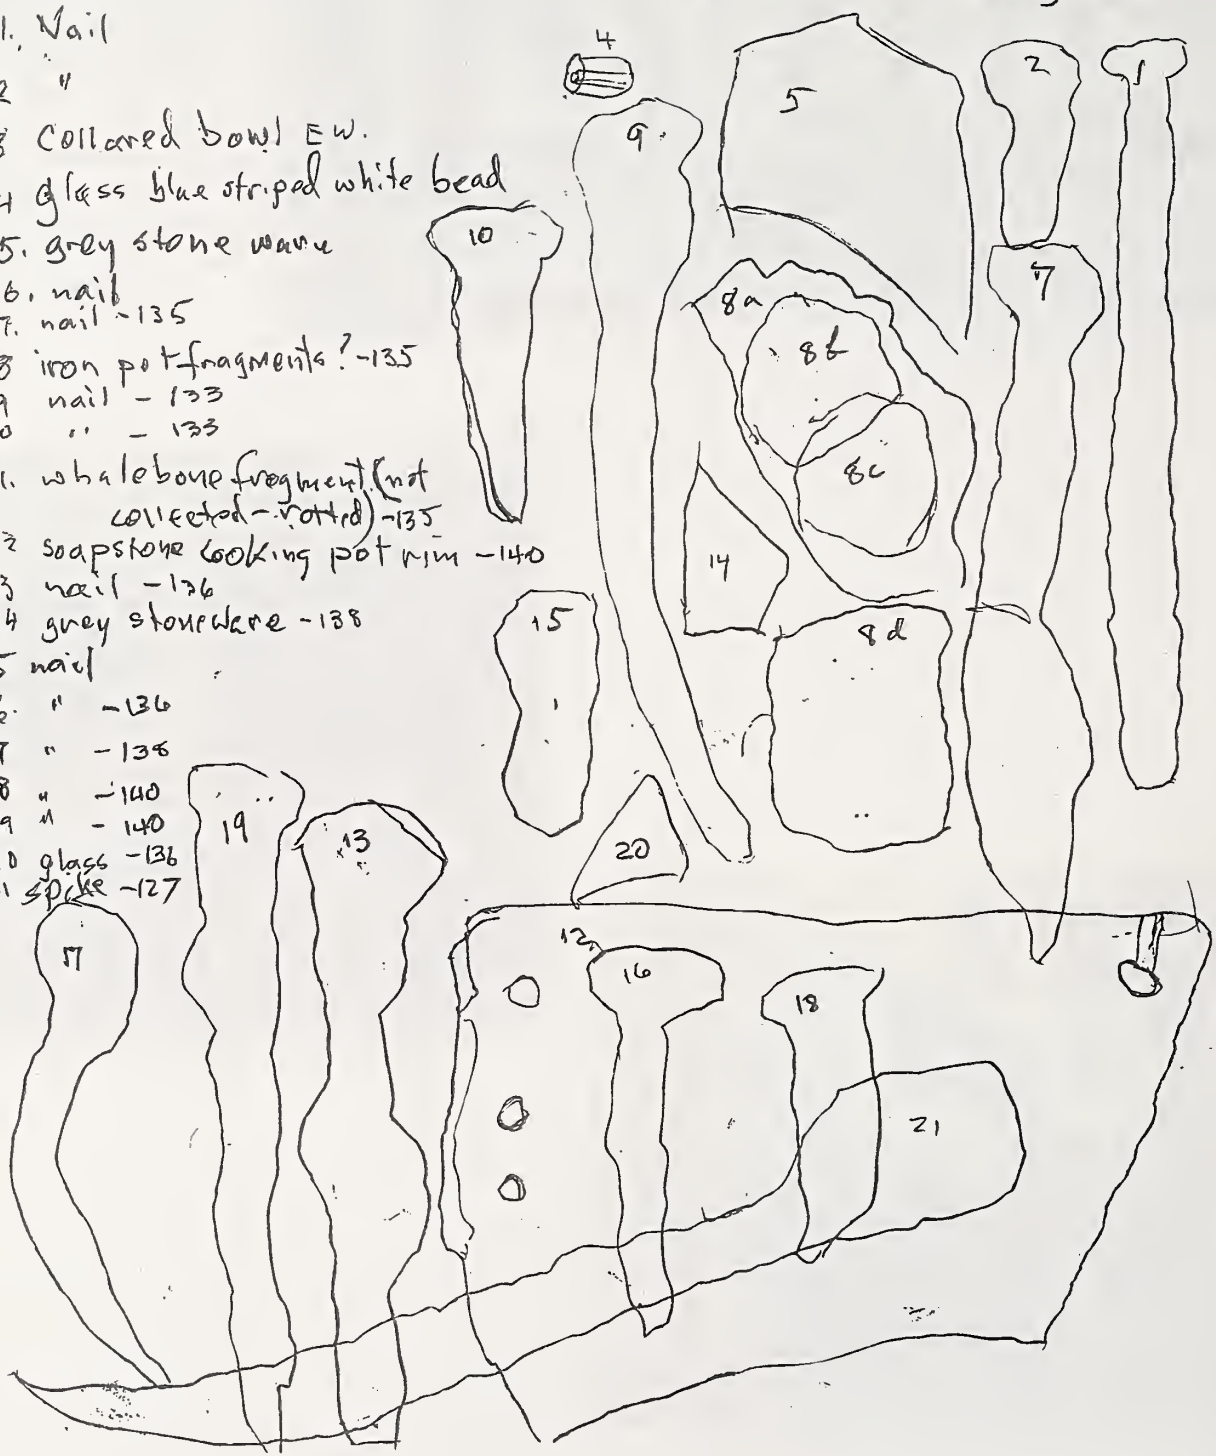 1. Nail
2 "
3 Collared bowl E W.
4 glass blue striped white bead
5. grey stone ware
6. nail
7. nail -135
8 iron pot fragments? -135
9 nail - 133
0 " - 133
1. whalebone fragment (not
collected - rotted) -135
2 soapstone cooking pot rim -140
3 nail -136
4 grey stoneware -138
5 nail
6. " -136
7 " -138
8 " -140
9 " - 140
0 glass -136
1 spike -127
4
5
2
1
9
10
7
8a
8b
8c
14
15
8d
19
13
20
17
12
16
18
21